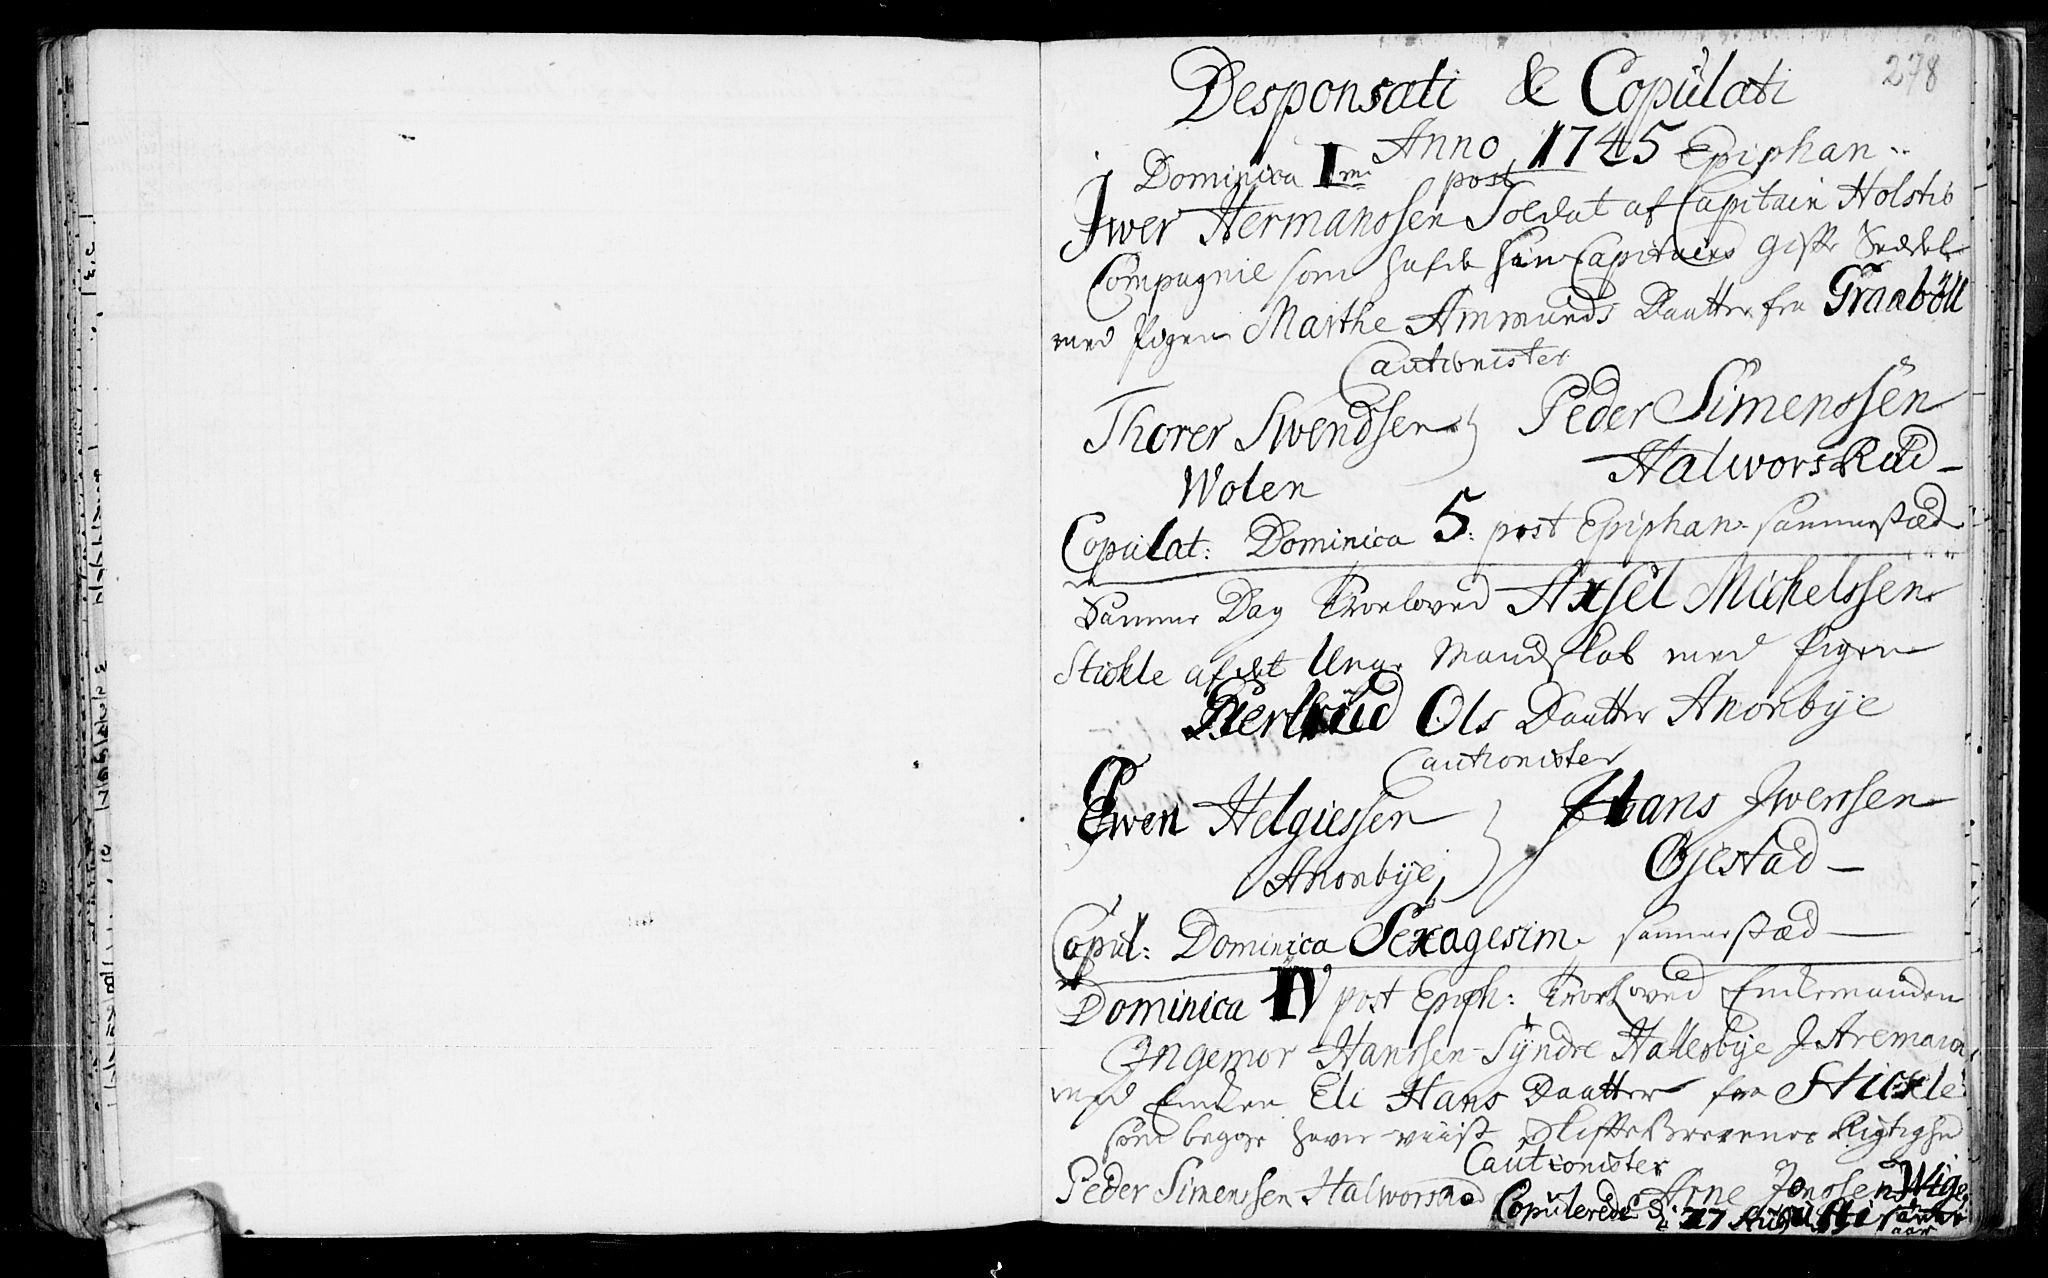 278
Desponsati & Copulati
Anno 1745
Dominica I.ma post Epiphan..
Iwer Hermanssen Soldat af Capitain Holstis
Compagnie som hafde sin Capitains Gifte Seddel
med Pigen Marthe Ammunds Daatter fra Graaböll
Cautionister
Thorer Swendsen Peder Simenssen
Wolen Halworsrud
Copulat: Dominica 5: post Epiphan. sammestæd
Samme Dag Troeloved Axsel Michelssen
Stickle af det Unge Mandskab med Pigen
Giertrud Ols Daatter Anonbÿe
Cautionister
Ewen Helgiessen Hans Iwerssen
Anonbÿe Ojestad
Copul: Dominica Sexagesim. sammestæd
Dominica IV post Epiph: Troeloved Enkemanden
Ingemor Hanssen Sÿndre Hallesbÿe I Aremarck
med Enken Eli Hans Daatter fra Stickle
som begge haver viist Skifte Brevenes Rigtighed
Cautionister
Peder Simenssen Halworsrud Arne Jonssen Wige
Copulerede d: 27 Augusti